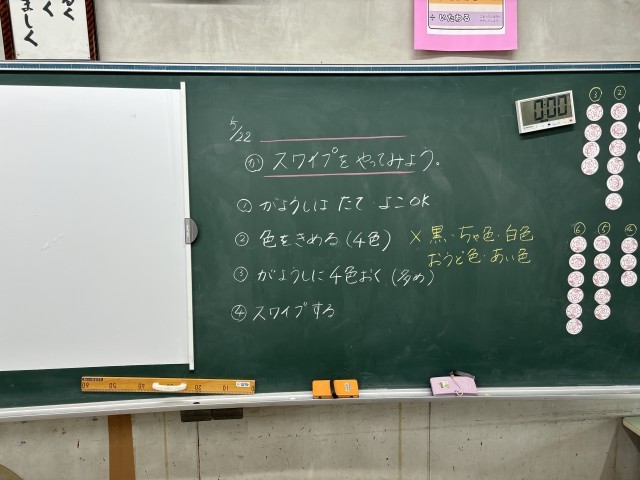 るく
く
ましく
÷いたわる
0:00
5/22
か スワイプをやってみよう。
① がようしは たて よこOK
② 色をきめる(4色) × 黒・ちゃ色・白色
おうど色・あい色
③ がようしに4色おく(多め)
④ スワイプする
③ ②
⑥ ⑤ ④
60 50 40 20 10